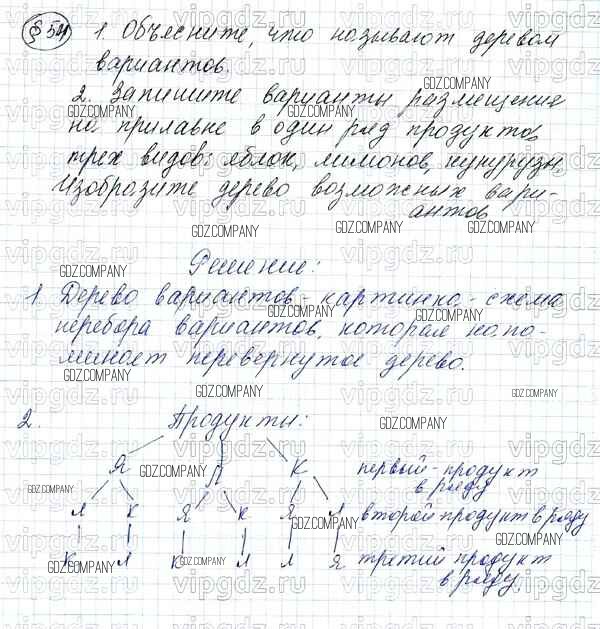 § 54
1. Объясните, что называют деревом
вариантов.
2. Запишите варианты размещения
на прилавке в один ряд продуктов
трех видов: яблок, лимонов, кукурузы.
Изобразите дерево возможных вари-
антов
Решение:
1 Дерево вариантов - картинка - схема
перебора вариантов, которая напо-
минает перевернутое дерево.
2. Продукты:
Я Л К первый - продукт
в ряду
Л К Я К Я Л второй продукт в ряду
К Л К Л Я третий продукт
в ряду
GDZ.COMPANY
vipgdz.ru